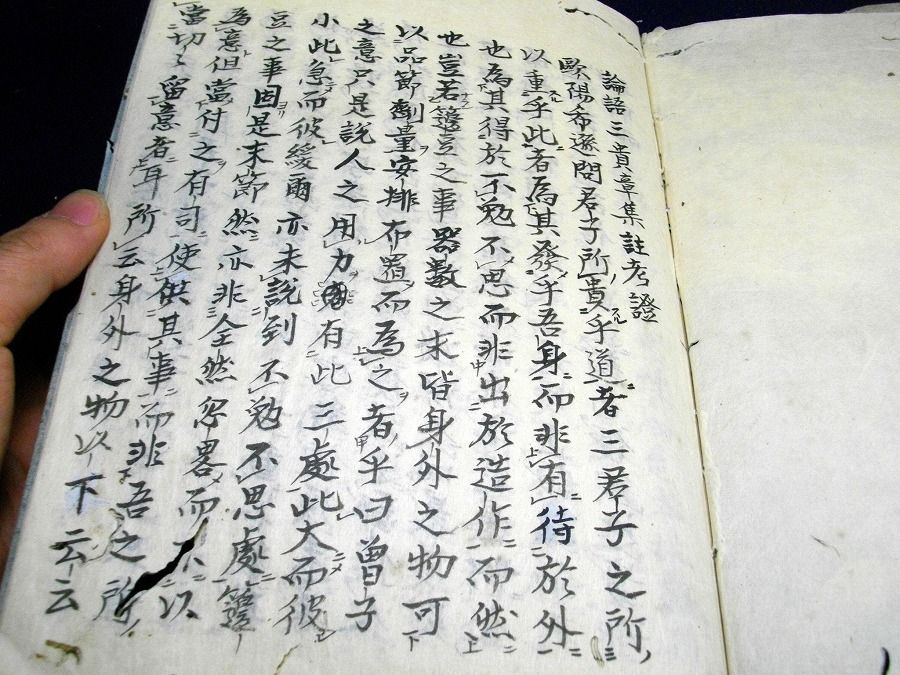 論語三貴章集註考證
歐陽希遜問君子所貴乎道者三君子之所
以重乎此者為其發乎吾身而非有待於外
也為其得於不勉不思而非出於造作而然
也豈若籩豆之事器数之末皆身外之物可
以品節劑量安排布置而為之者乎曰曾子
之意只是説人之用力有此三處此大而彼
小此急而彼緩爾亦未説到不勉不思處籩
豆之事因是末節然亦非全然忽畧而不以
為意但當付之有司使供其事而非吾之所
當切々留意者耳所云身外之物以下云云